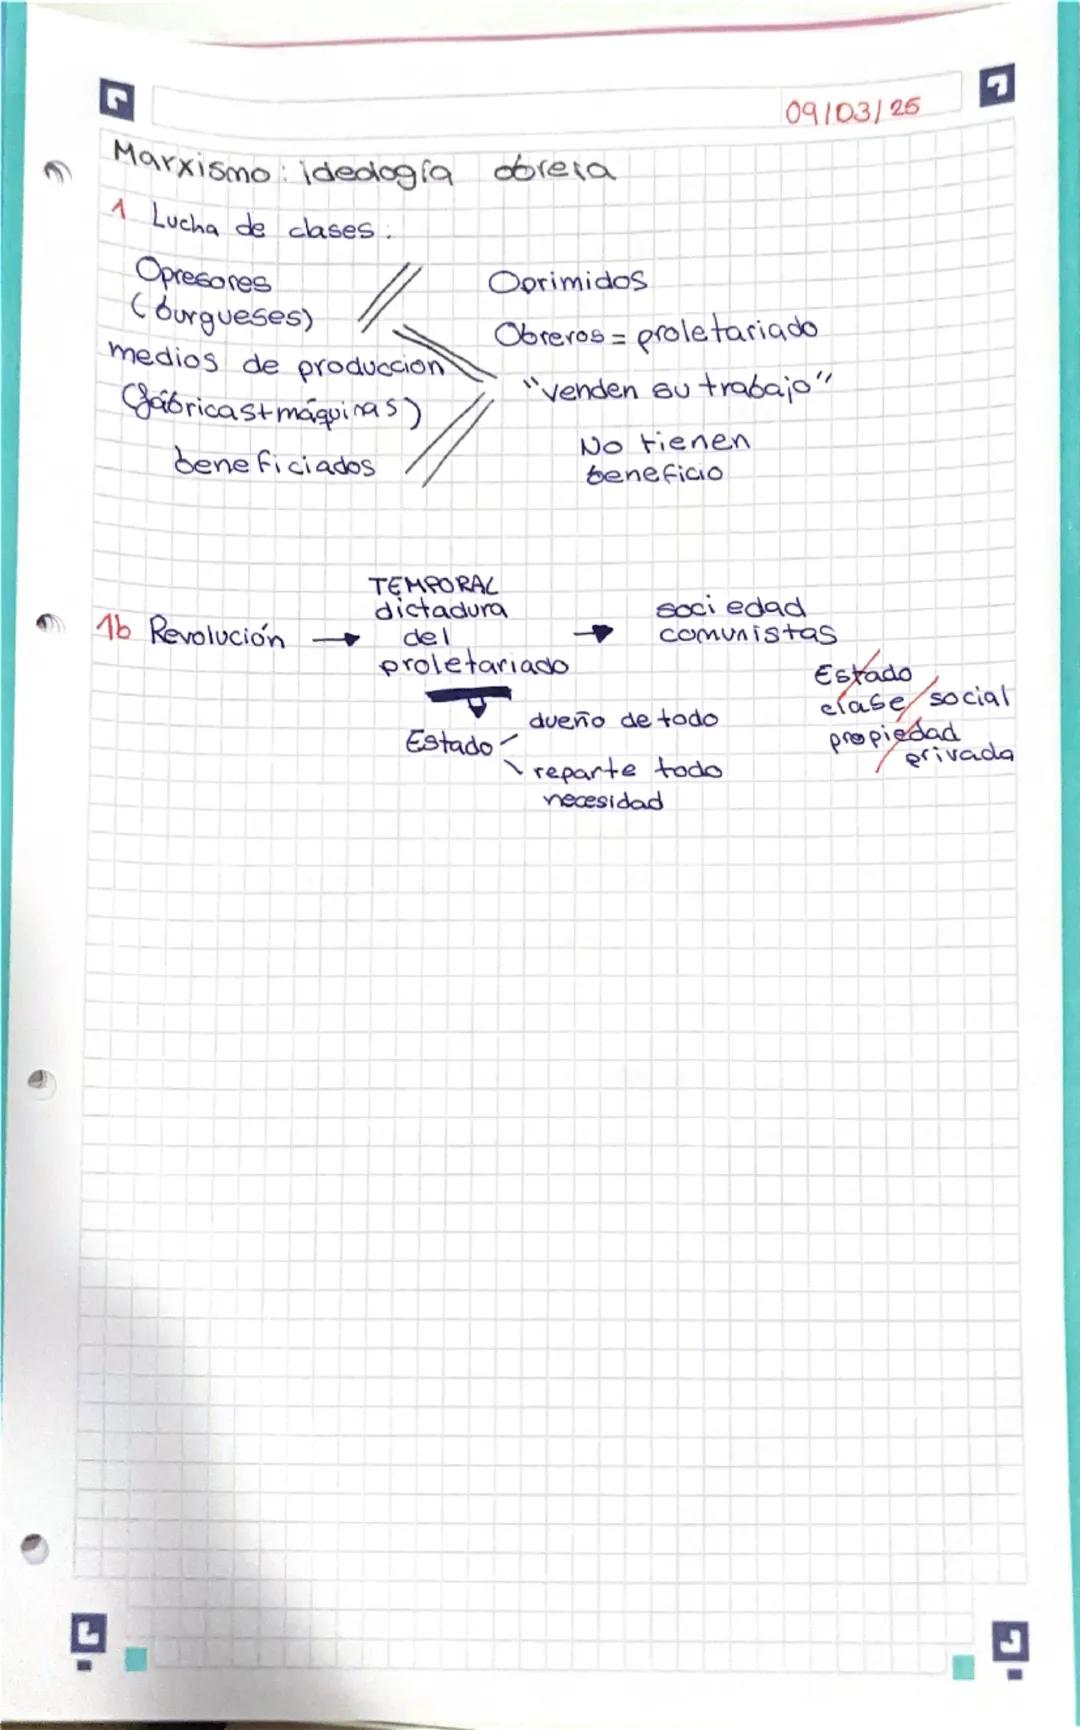 09/03/25
Marxismo: ideología obrera
1 Lucha de clases:
Opresores
(burgueses)
medios de produccion
(fábricas+máquinas)
beneficiados
Oprimidos
Obreros = proletariado
"venden su trabajo"
No tienen
beneficio
1b Revolución → TEMPORAL
dictadura
del
proletariado
→ sociedad
comunistas
Estado
dueño de todo
reparte todo
necesidad
Estado
clase social
propiedad
privada